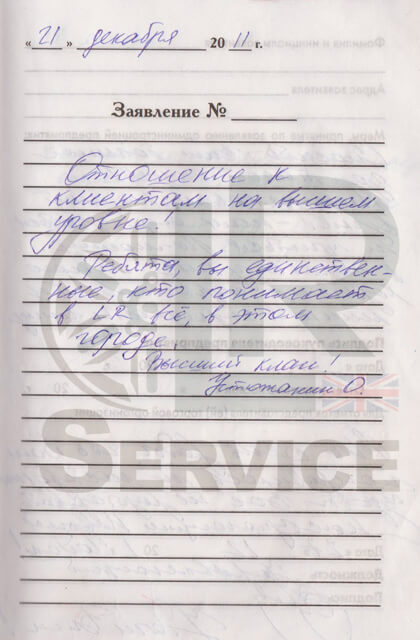 « 21 » декабря 20 11 г.
Заявление №
Отношение к
клиентам на высшем
уровне!
Ребята, вы единствен-
ные, кто понимает
в LR всё, в этом
городе.
Высший класс!
Устюжанин О.
LR
SERVICE